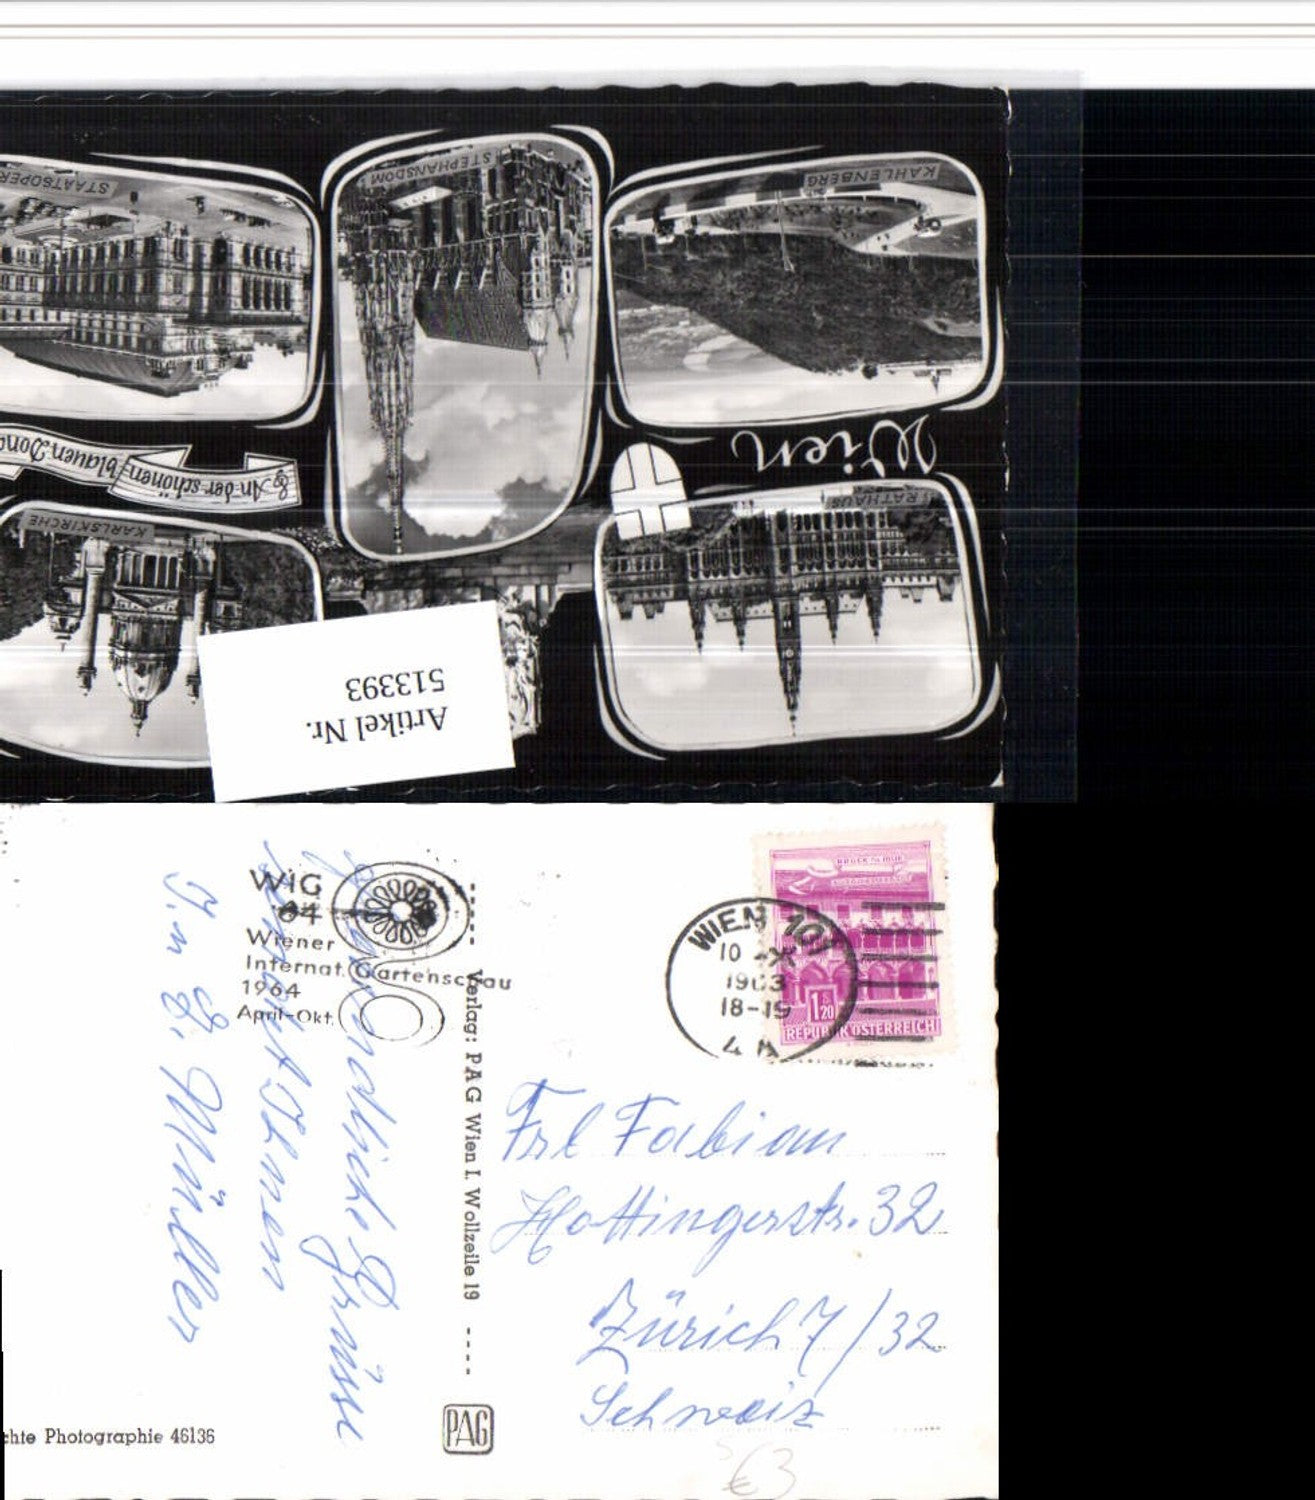 STAATSOPER
STEPHANSDOM
KAHLENBERG
Wien
An der schönen blauen Dona
KARLSKIRCHE
RATHAUS
Artikel Nr.
513393
WIG
64
Wiener
Internat. Gartenschau
1964
April-Okt.
WIEN 101
10 -X
1963
18-19
4 A
1.20
REPUBLIK ÖSTERREICH
Verlag: PAG Wien I. Wollzeile 19
Freundliche Grüsse
sendet Ihnen
H. u. G. Müller
Frl Fabian
Hottingerstr. 32
Zürich 7/32
Schweiz
chte Photographie 46136
PAG
€3